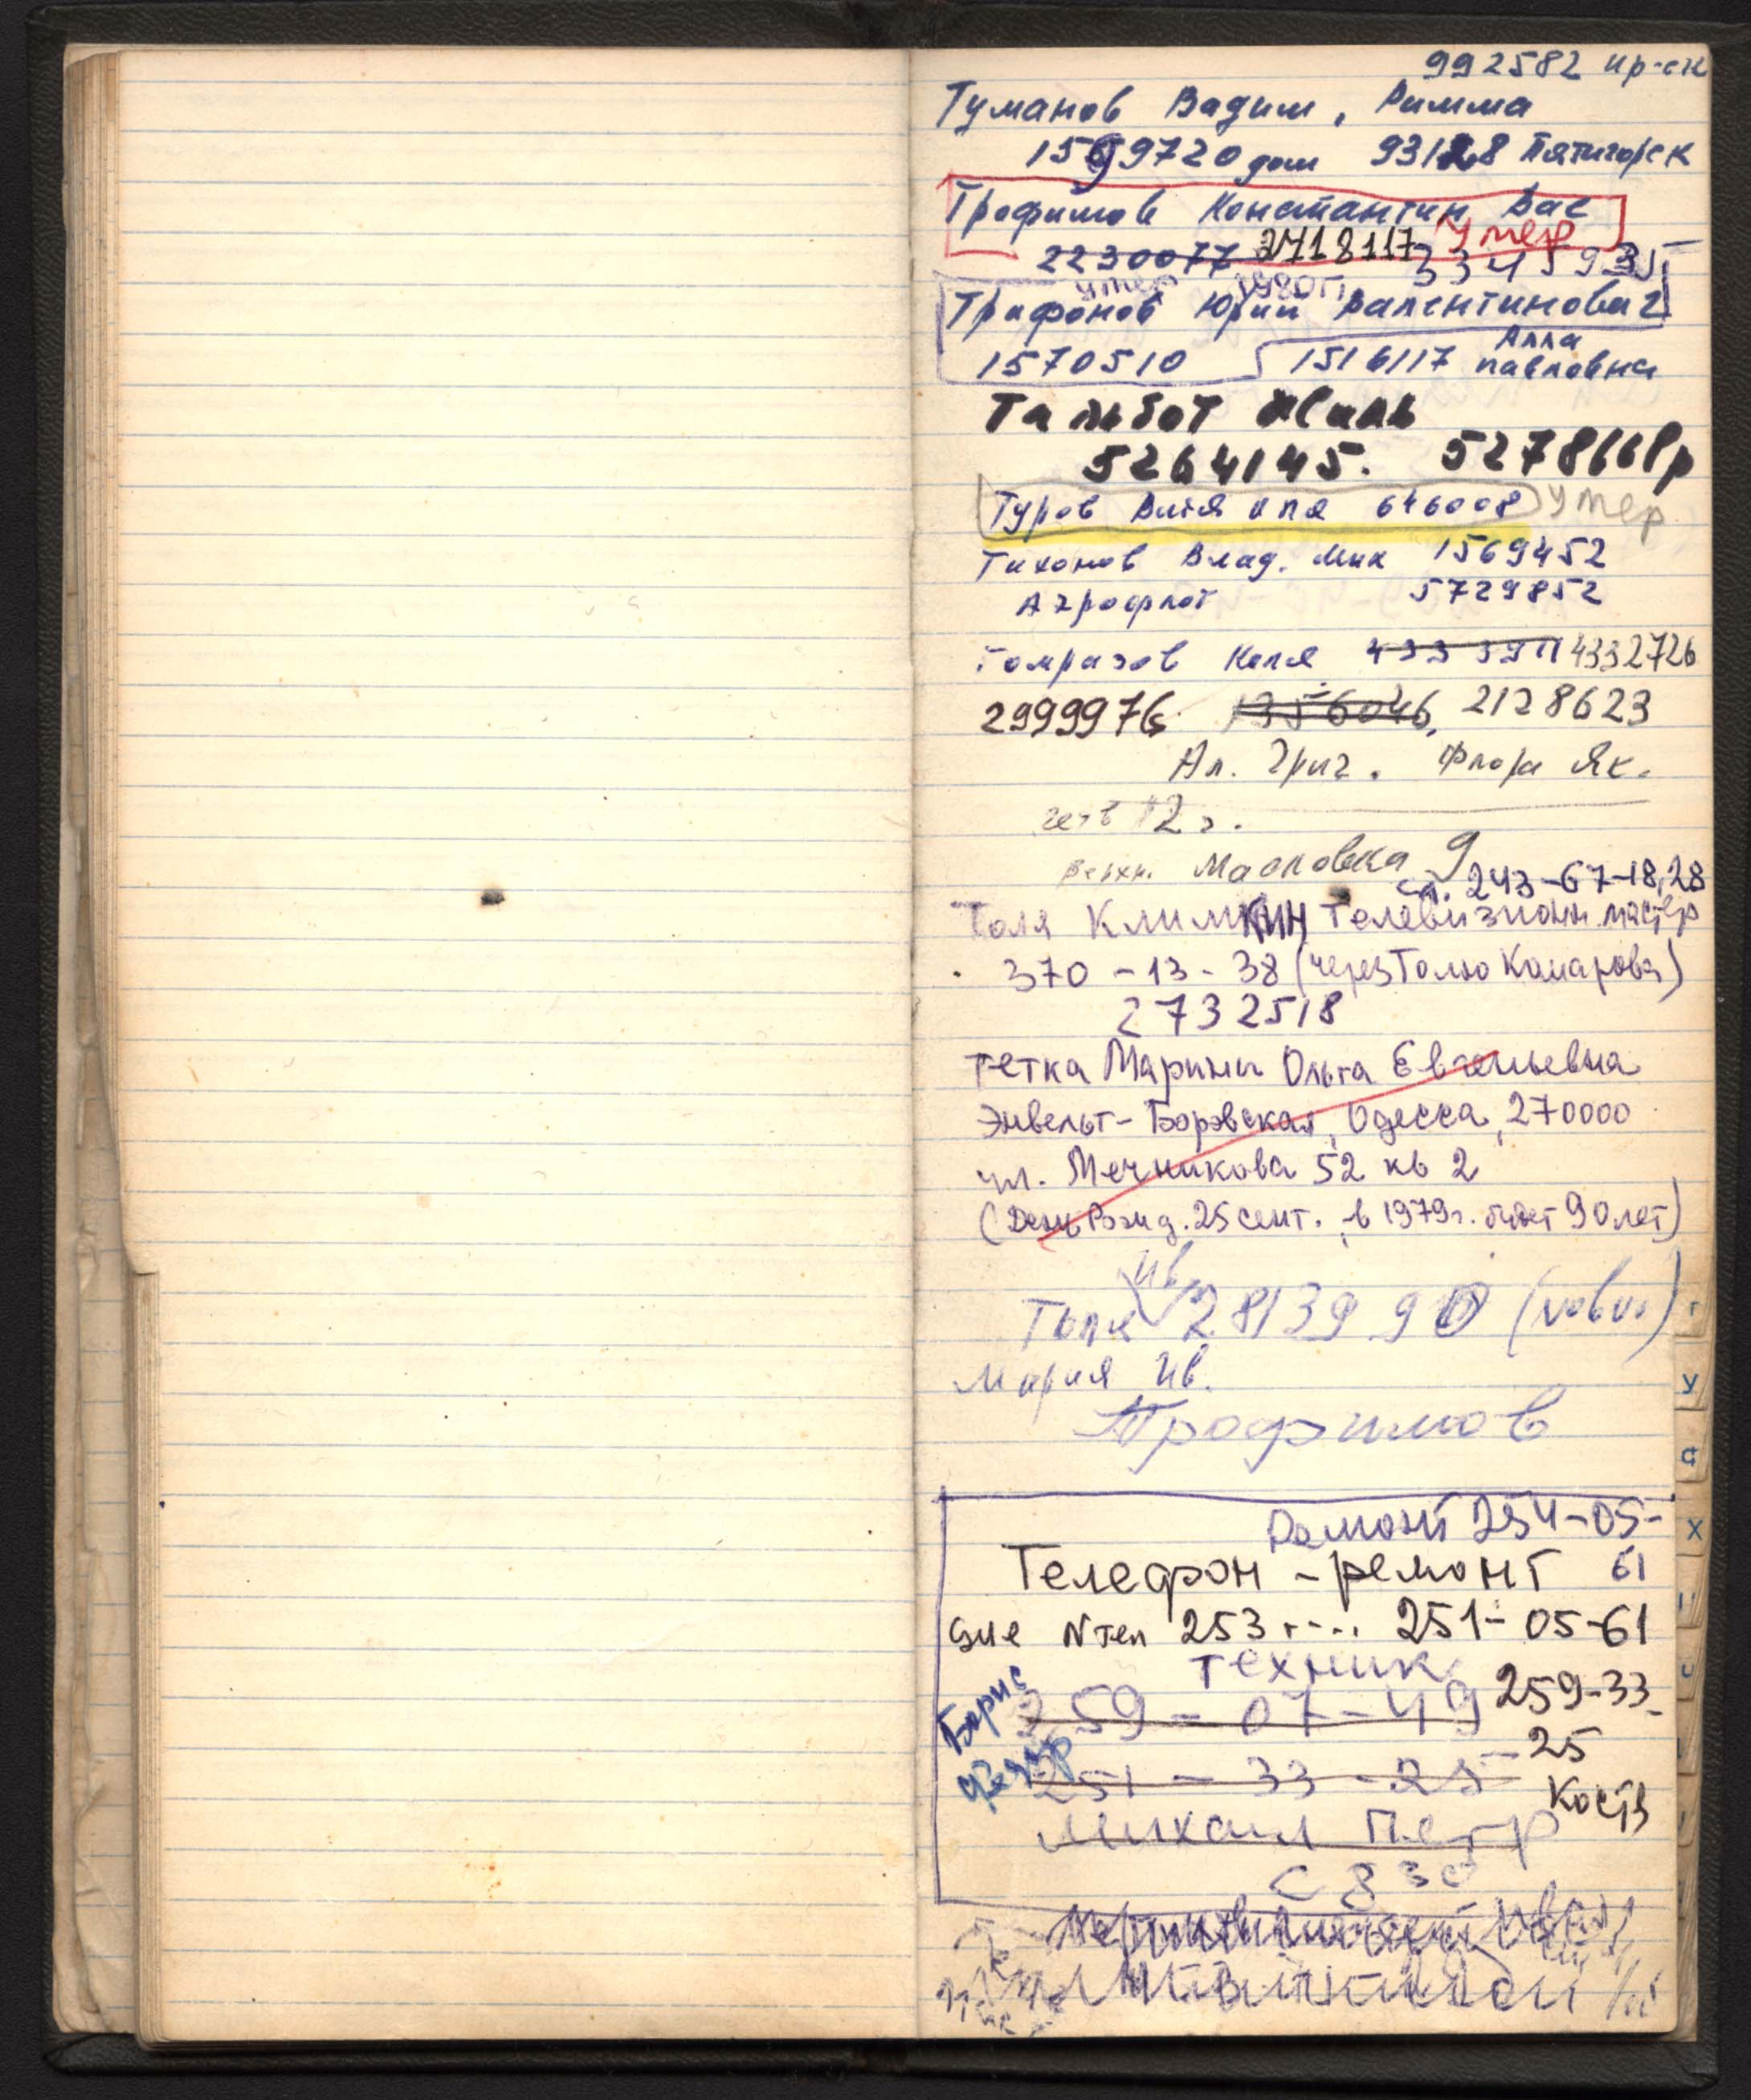 992582 Ир-ск
Туманов Вадим, Римма
1569720 дом 93128 Пятигорск
Трофимов Константин Вас
умер
2230077 2718117 3345935
умер 1980 г.
Трифонов Юрий Валентинович
Алла
1570510 1516117 Павловна
Тальбот Жиль
5264145. 5278661 р
Туров Витя Иля 646008 умер
Тихонов Влад. Мих 1569452
Аэрофлот 5729852
Томразов Коля 4332726
2999976 1356046, 2128623
Ал. Григ. Флора Як.
четв 12 г.
Верхн. Масловка 9
сл. 243-67-18, 28
Толя Климкин телевизионн. мастер
370-13-38 (через Толю Комарова)
2732518
Тетка Марины Ольга Евгеньевна
Энвельт-Боровская, Одесса, 270000
ул. Мечникова 52 кв 2
(День Рожд. 25 сент. в 1979 г. будет 90 лет)
Ив
Толя 2813990 (новый)
Мария Ив.
Трофимов
Ремонт 254-05-
61
Телефон - ремонт
для N тел 253.... 251-05-61
техник
259-07-49 259-33-
25
Борис
Федор
251-33-25
Костя
Михаил Петр
с 8 30